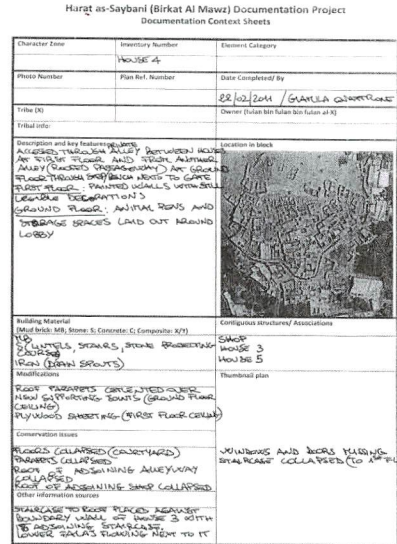 Harat as-Saybani (Birkat Al Mawz) Documentation Project
Documentation Context Sheets
Character Zone
Inventory Number
Element Category
HOUSE 4
Photo Number
Plan Ref. Number
Date Completed/ By
22/02/2011 / GIAMILA QUATTRONE
Tribe (X)
Owner (fulan bin fulan bin fulan al-X)
Tribal info:
Description and key features
Location in block
PRIVATE
ACCESSED THROUGH ALLEY BETWEEN HOUSES
AT FIRST FLOOR AND FROM ANOTHER
ALLEY (ROOFED PASSAGEWAY) AT GROUND
FLOOR THROUGH NEXT TO GATE
FIRST FLOOR: PAINTED WALLS WITH STILL
LEGIBLE DECORATIONS
GROUND FLOOR: ANIMAL PENS AND
STORAGE SPACES LAID OUT AROUND
LOBBY
Building Material
(Mud brick: MB, Stone: S; Concrete: C; Composite: X/Y)
Contiguous structures/ Associations
MB
S (LINTELS, STAIRS, STONE PROJECTING
COURSE)
IRON (DRAIN SPOUTS)
SHOP
HOUSE 3
HOUSE 5
Modifications
Thumbnail plan
ROOF PARAPETS CEMENTED OVER
NEW SUPPORTING JOISTS (GROUND FLOOR
CEILING)
PLYWOOD SHEETING (FIRST FLOOR CEILING)
Conservation issues
FLOORS COLLAPSED (COURTYARD)
PARAPETS COLLAPSED
ROOF OF ADJOINING ALLEYWAY
COLLAPSED
ROOF OF ADJOINING SHOP COLLAPSED
WINDOWS AND DOORS MISSING
STAIRCASE COLLAPSED (TO 1ST FL
Other information sources
STAIRCASE TO ROOF PLACED AGAINST
BOUNDARY WALL OF HOUSE 3 WITH
ADJOINING STAIRCASE.
LOWER FALAJ FLOWING NEXT TO IT